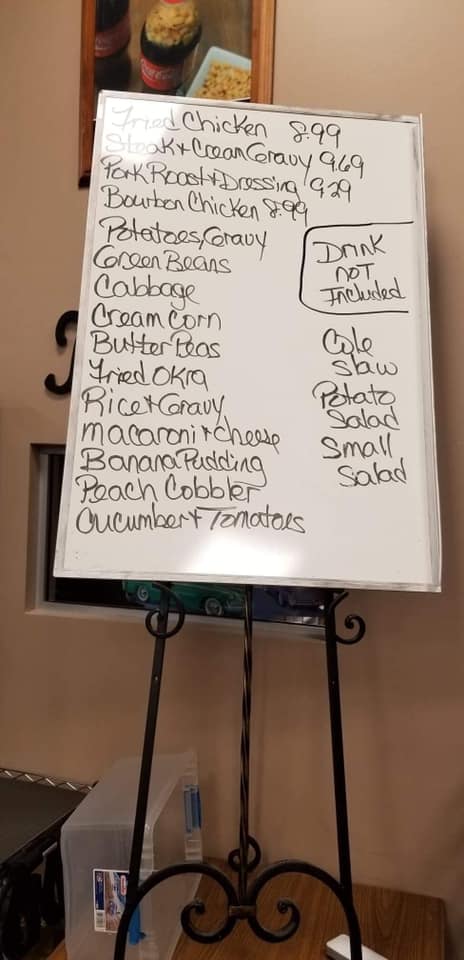 Fried Chicken 8.99
Steak + Cream Gravy 9.69
Pork Roast + Dressing 9.29
Bourbon Chicken 8.99
Potatoes, Gravy
Green Beans
Cabbage
Cream Corn
Butter Peas
Fried Okra
Rice + Gravy
Macaroni + Cheese
Banana Pudding
Peach Cobbler
Cucumber + Tomatoes
Drink
NOT
Included
Cole
Slaw
Potato
Salad
Small
Salad
Coca-Cola